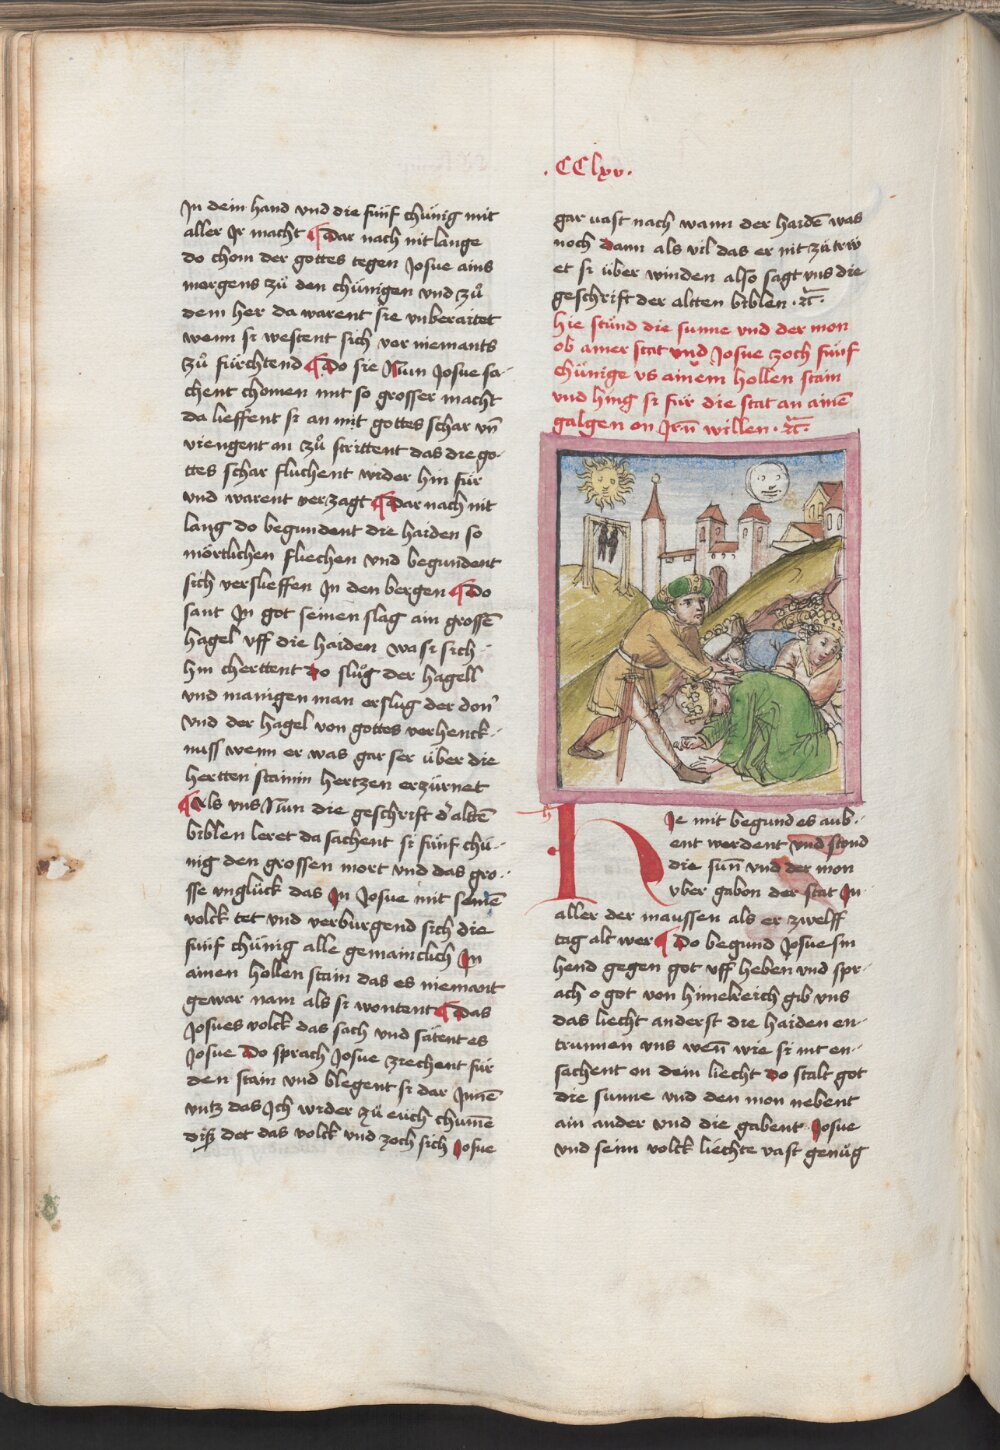 .CClxv.
In dein hand vnd die fünf chünig mit
aller Jr macht ¶ Dar nach nit lange
do chom der gottes tegen Josue ains
morgens zů den chünigen vnd zů
dem her da warent sie vnberaitet
wenn si westent sich vor niemants
zů fürchtend ¶ Do sie Nun Josue sa-
chent chomen mit so grosser macht
da lieffent si an mit gottes schar vn̄
viengent an zů strittent das die go-
ttes schar fluchent wider hin für
vnd warent verzagt ¶ Dar nach nit
lang do begundent die haiden so
mörtlichen fliechen vnd begundent
sich verslieffen Jn den bergen ¶ Do
sant Jn got seinen slag ain grossē
hagel vff die haiden wa si sich
hin cherttent do slůg der hagell
vnd manigen man erslůg der don̄
vnd der hagel von gottes verhenck-
nuss wenn er was gar ser über die
hertten stainin hertzen erzürnet
¶ Als vns Nun die geschrift d' altē
biblen leret da sachent si fünf chü-
nig den grossen mort vnd das gro-
sse vnglück das Jn Josue mit seinē
volck tet vnd verburgend sich die
fünf chünig alle gemainclich Jn
ainen hollen stain das es niemant
gewar nam als si wontent ¶ Das
Josues volck das sach vnd sātent es
Josue Do sprach Josue ziechent für
den stain vnd blegent si dar Jnnē
vntz das Jch wider zů euch chumē
diß det das volck vnd zoch sich Josue
gar vast nach wann der haidē was
noch dann als vil das er nit zů trw
et si über winden also sagt vns die
geschrift der altten biblen . rc̄ .
hie stůnd die sunne vnd der mon
ob ainer stat vnd Josue zoch fünf
chünige vs ainem hollen stain
vnd hing si für die stat an ainē
galgen on Jrn̄ willen . rc̄ .
h
Hie mit begund es aub-
ent werdent vnd stond
die sun̄ vnd der mon
vber gabon der stat Jn
aller der maussen als er zwelff
tag alt wer ¶ Do begund Josue sin
hend gegen got vff heben vnd spr-
ach o got von himelreich gib vns
das liecht anderst die haiden en-
trinnen vns wen̄ wie si nit en-
sachent on dem liecht do stalt got
die sunne vnd den mon nebent
ain ander vnd die gabent Josue
vnd seim volck liechte vast genůg